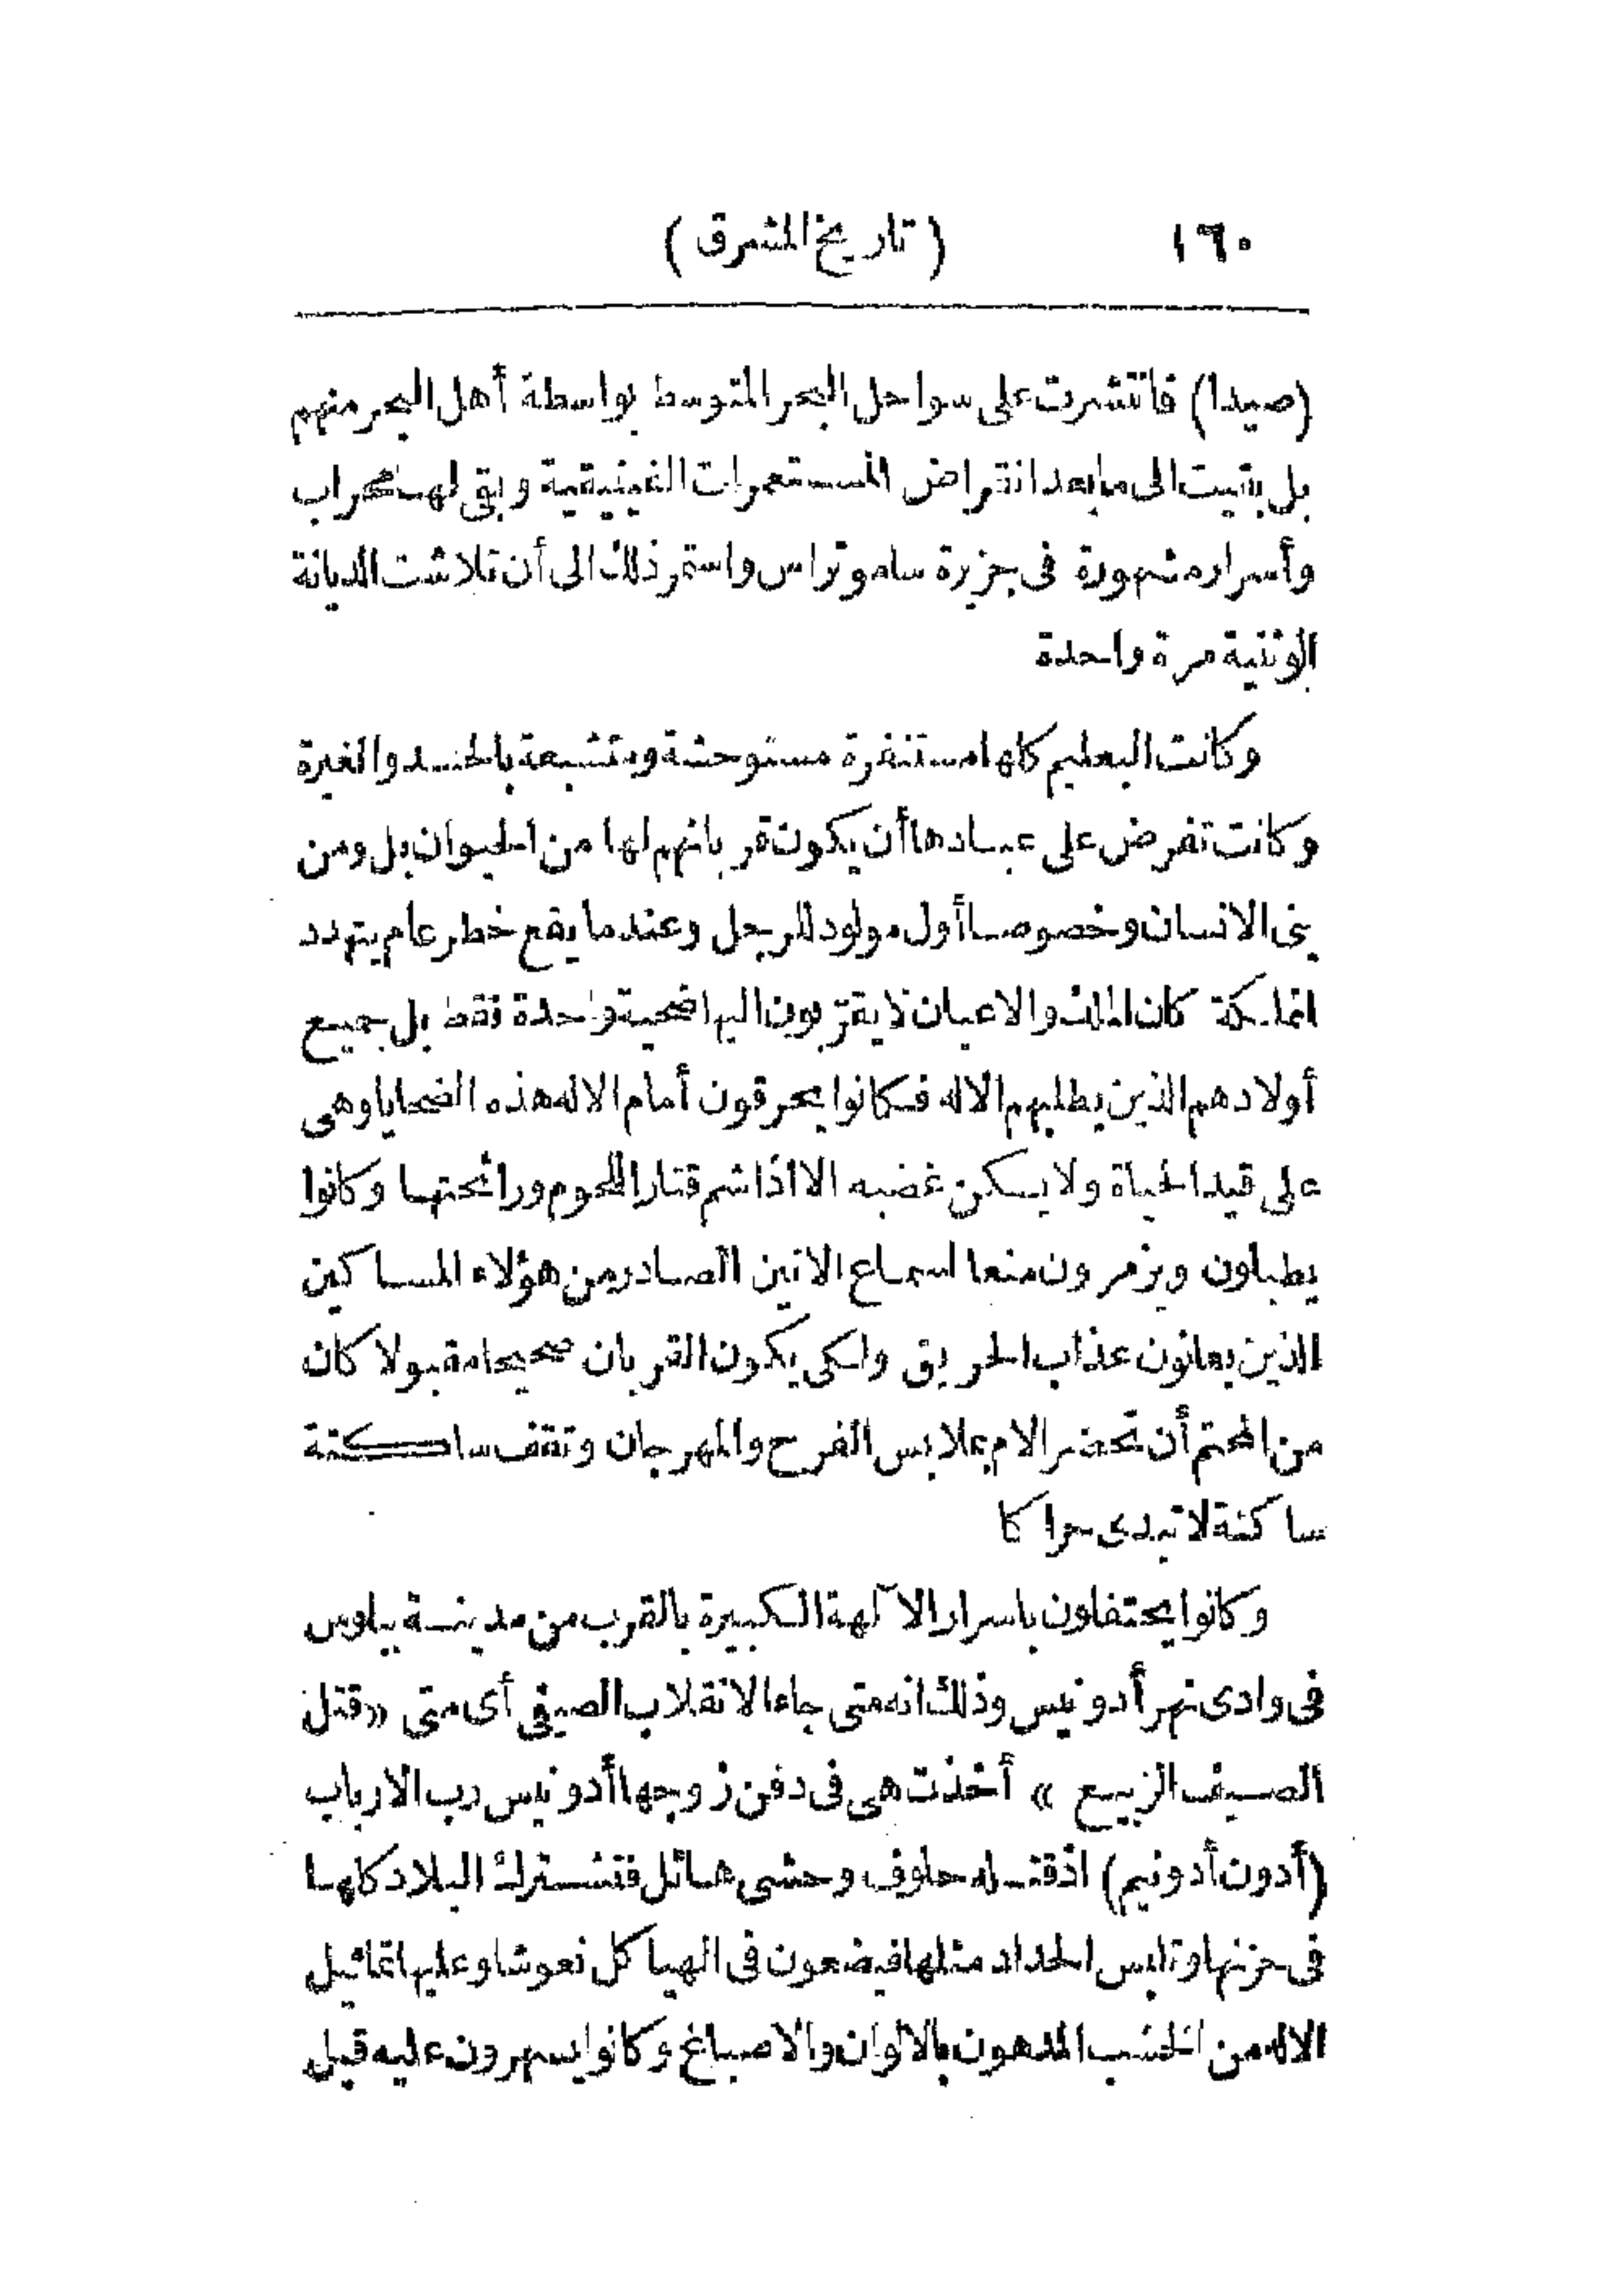 ١٦٠ (تاريخ المشرق)
(صيدا) فانتشرت على سواحل البحر المتوسط بواسطة أهل البحر منهم
بل بقيت الى ما بعد انقراض المستعمرات الفينيقية وبقى لها محراب
وأسرار مشهورة فى جزيرة ساموتراس واستمر ذلك الى أن تلاشت الديانة
الوثنية مرة واحدة
وكانت البعليم كلها مستنفرة مستوحشة ومتشبعة بالحسد والغيرة
وكانت تفرض على عبادها أن يكون قربانهم لها من الحيوان بل ومن
بنى الانسان وخصوصا أول مولود للرجل وعندما يقع خطر عام يتهدد
المملكة كان الملك والاعيان لا يقرّبون اليها ضحية واحدة فقط بل جميع
أولادهم الذين يطلبهم الاله فكانوا يحرقون أمام الاله هذه الضحايا وهى
على قيد الحياة ولا يسكن غضبه الا اذا شم قتار اللحوم ورائحتها وكانوا
يطبلون ويزمرون منعا لسماع الانين الصادر من هؤلاء المساكين
الذين يعانون عذاب الحريق ولكى يكون القربان صحيحا مقبولا كان
من المحتم أن تحضر الام بملابس الفرح والمهرجان وتقف ساكتة
ساكنة لا تبدى حراكا
وكانوا يحتفلون باسرار الآلهة الكبيرة بالقرب من مدينة بيلوس
فى وادى نهر أدونيس وذلك انه متى جاء الانقلاب الصيفى أى متى «قتل
الصيف الربيع» أخذت هى فى دفن زوجها أدونيس رب الارباب
(أدون أدونيم) اذ قتله حلوف وحشى هائل فتشترك البلاد كلها
فى حزنها وتلبس الحداد مثلها فيضعون فى الهياكل نعوشا وعليها تماثيل
الاله من الخشب المدهون بالالوان والاصباغ وكانوا يسهرون عليه قبل